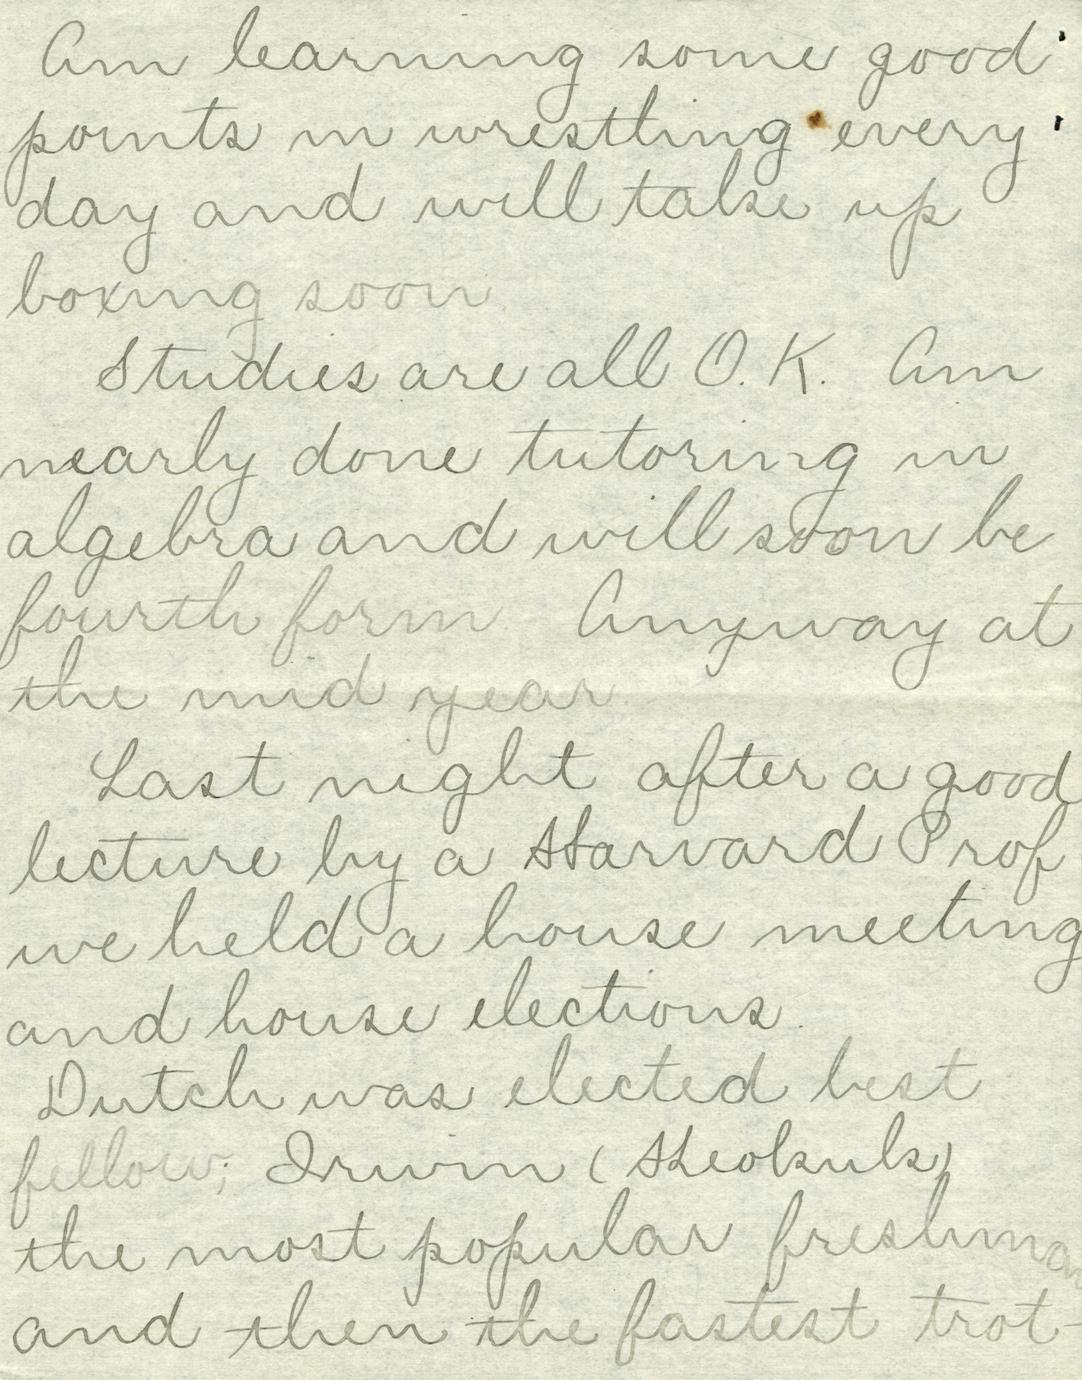 Am learning some good
points in wrestling every
day and will take up
boxing soon
Studies are all O.K. Am
nearly done tutoring in
algebra and will soon be
fourth form Anyway at
the mid year
Last night after a good
lecture by a Harvard Prof
we held a house meeting
and house elections.
Dutch was elected best
fellow; Irwin (Keokuk)
the most popular freshman
and then the fastest trot-